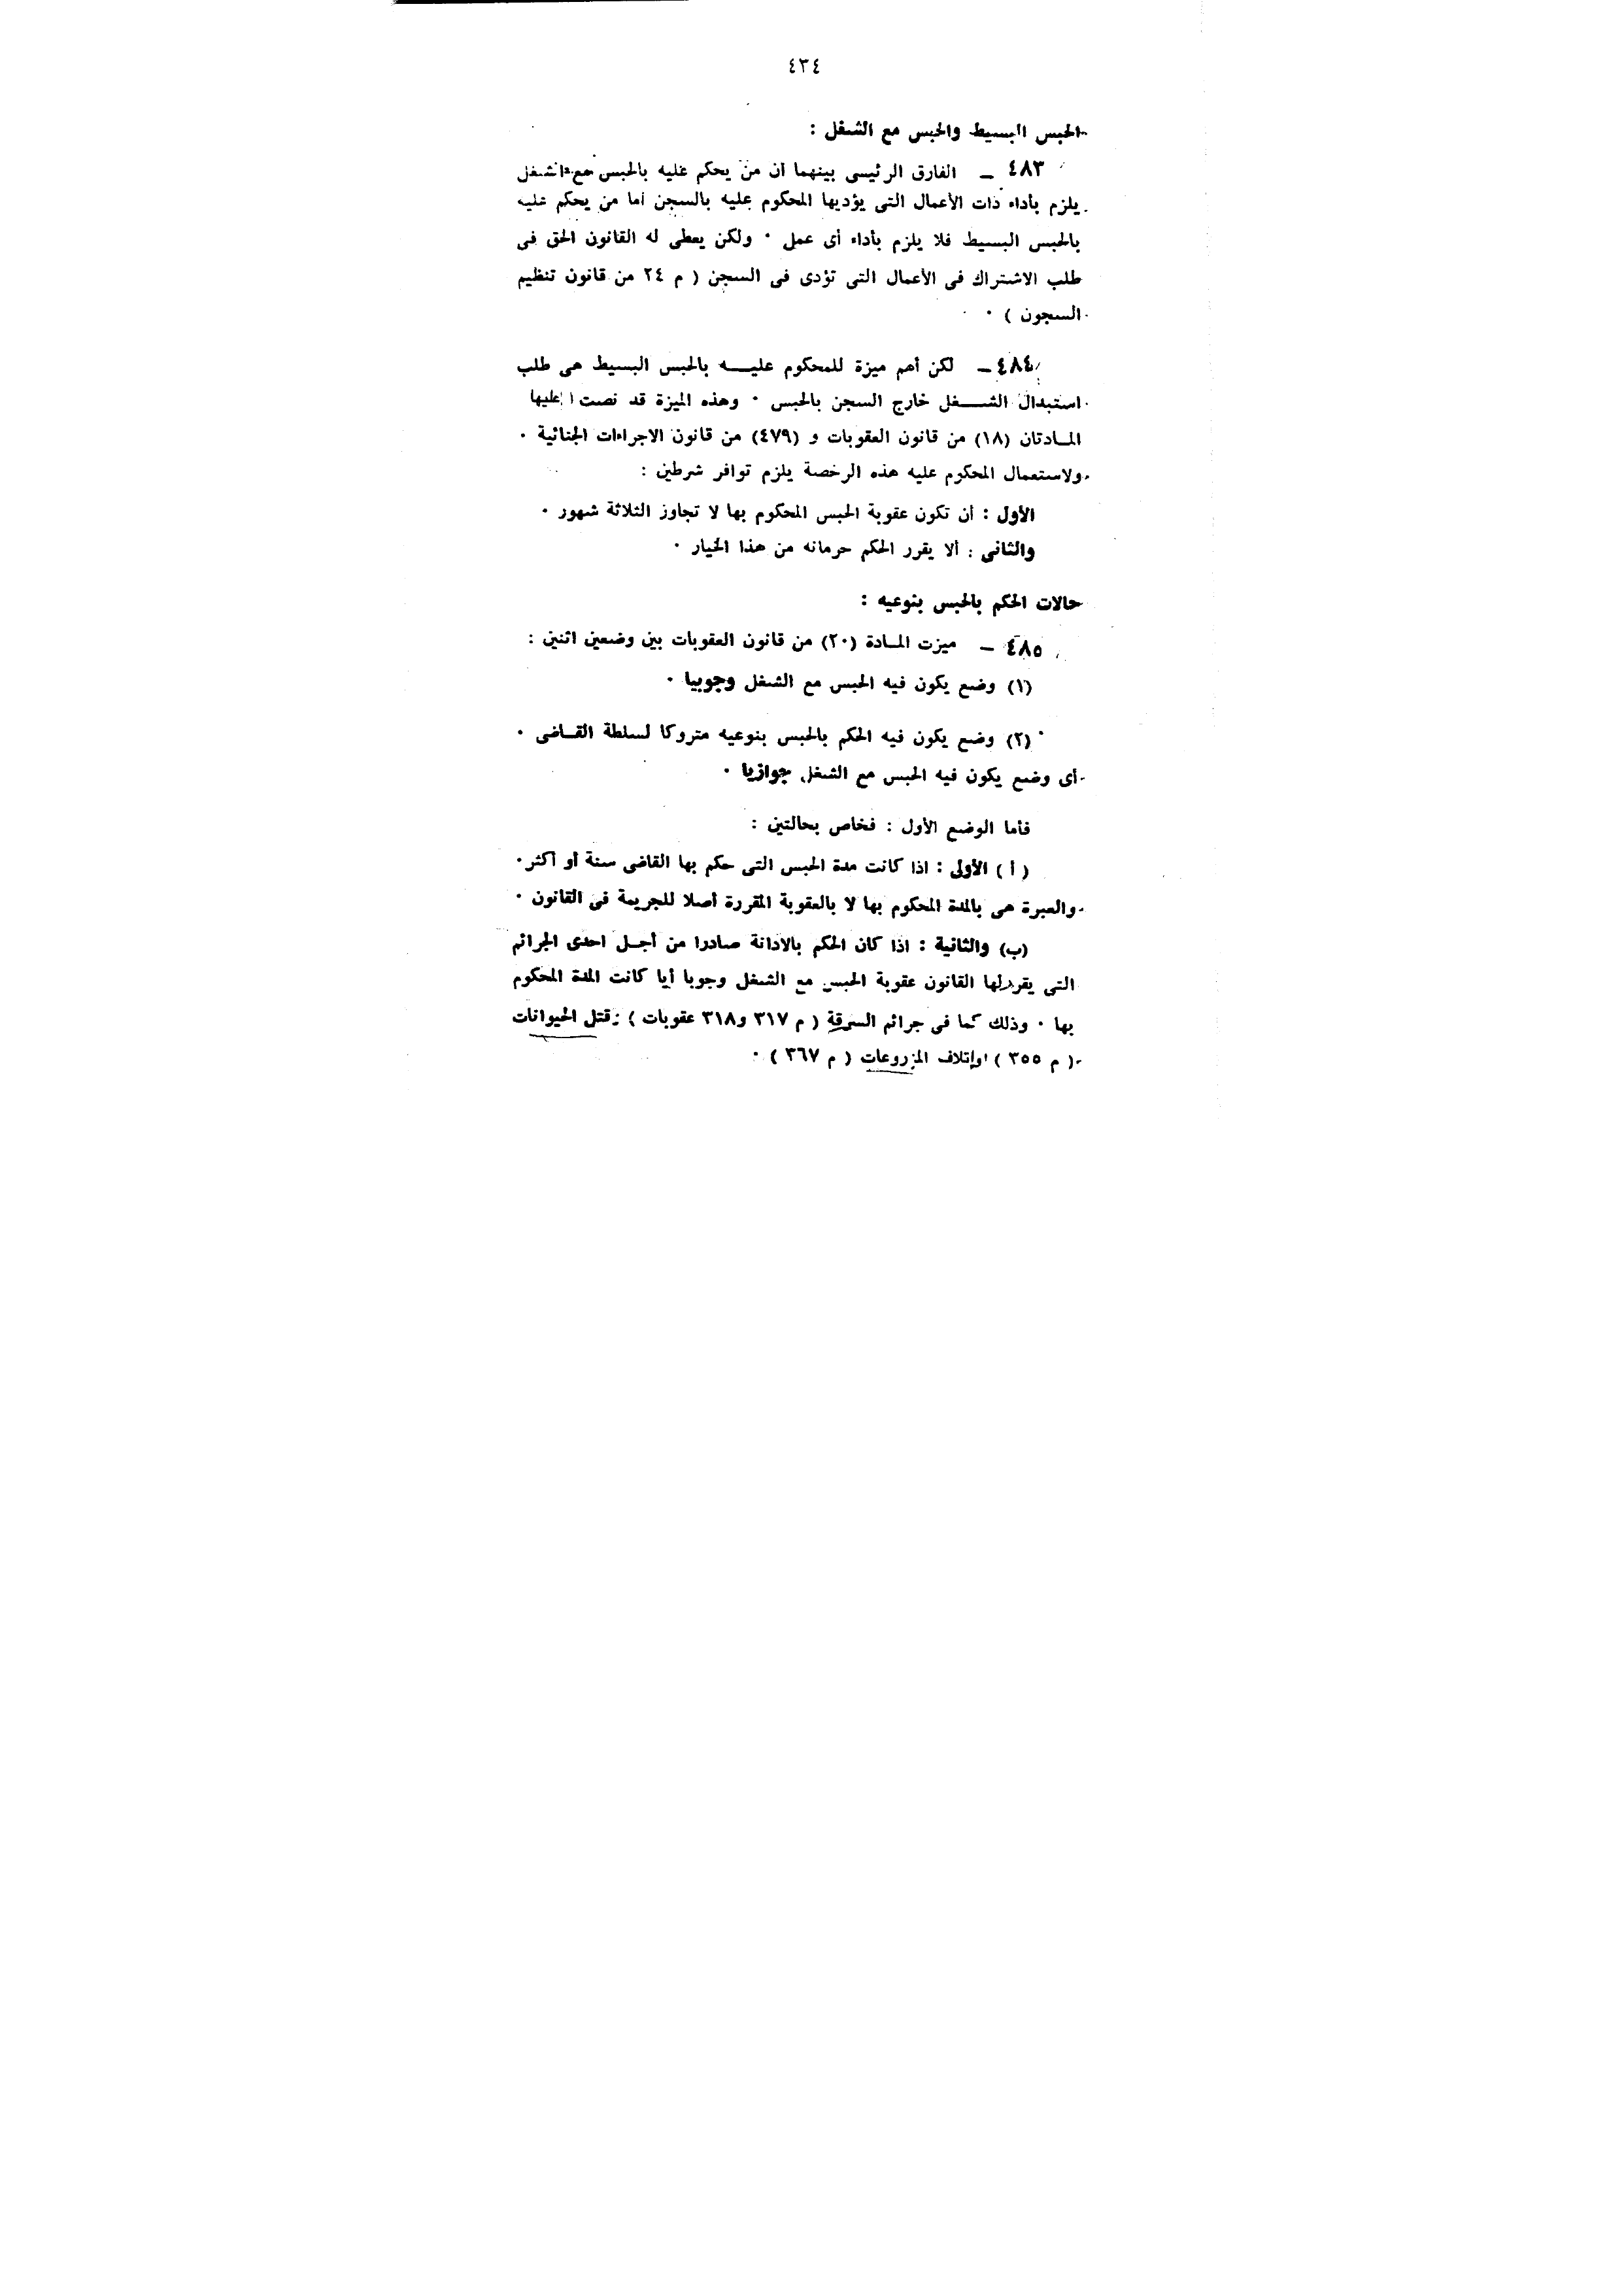 ٤٣٤
الحبس البسيط والحبس مع الشغل :
٤٨٣ ــ الفارق الرئيسى بينهما أن من يحكم عليه بالحبس مع الشغل
يلزم بأداء ذات الأعمال التى يؤديها المحكوم عليه بالسجن أما من يحكم عليه
بالحبس البسيط فلا يلزم بأداء أى عمل ٠ ولكن يعطى له القانون الحق فى
طلب الاشتراك فى الأعمال التى تؤدى فى السجن ( م ٢٤ من قانون تنظيم
السجون ) ٠
٤٨٤ ــ لكن أهم ميزة للمحكوم عليـــه بالحبس البسيط هى طلب
استبدال الشـــغل خارج السجن بالحبس ٠ وهذه الميزة قد نصت عليها
المـادتان (١٨) من قانون العقوبات و (٤٧٩) من قانون الاجراءات الجنائية ٠
ولاستعمال المحكوم عليه هذه الرخصة يلزم توافر شرطين :
الأول : أن تكون عقوبة الحبس المحكوم بها لا تجاوز الثلاثة شهور ٠
والثانى : ألا يقرر الحكم حرمانه من هذا الخيار ٠
حالات الحكم بالحبس بنوعيه :
٤٨٥ ــ ميزت المـادة (٢٠) من قانون العقوبات بين وضعين اثنين :
(١) وضع يكون فيه الحبس مع الشغل وجوبيا ٠
(٢) وضع يكون فيه الحكم بالحبس بنوعيه متروكا لسلطة القـاضى ٠
أى وضع يكون فيه الحبس مع الشغل جوازيا ٠
فأما الوضع الأول : فخاص بحالتين :
( أ ) الأولى : اذا كانت مدة الحبس التى حكم بها القاضى سنة أو أكثر ٠
والعبرة هى بالمدة المحكوم بها لا بالعقوبة المقررة أصلا للجريمة فى القانون ٠
(ب) والثانية : اذا كان الحكم بالادانة صادرا من أجـل احدى الجرائم
التى يقرر لها القانون عقوبة الحبس مع الشغل وجوبا أيا كانت المدة المحكوم
بها ٠ وذلك كما فى جرائم السرقة ( م ٣١٧ و٣١٨ عقوبات ) وقتل الحيوانات
( م ٣٥٥ ) وإتلاف المزروعات ( م ٣٦٧ ) ٠